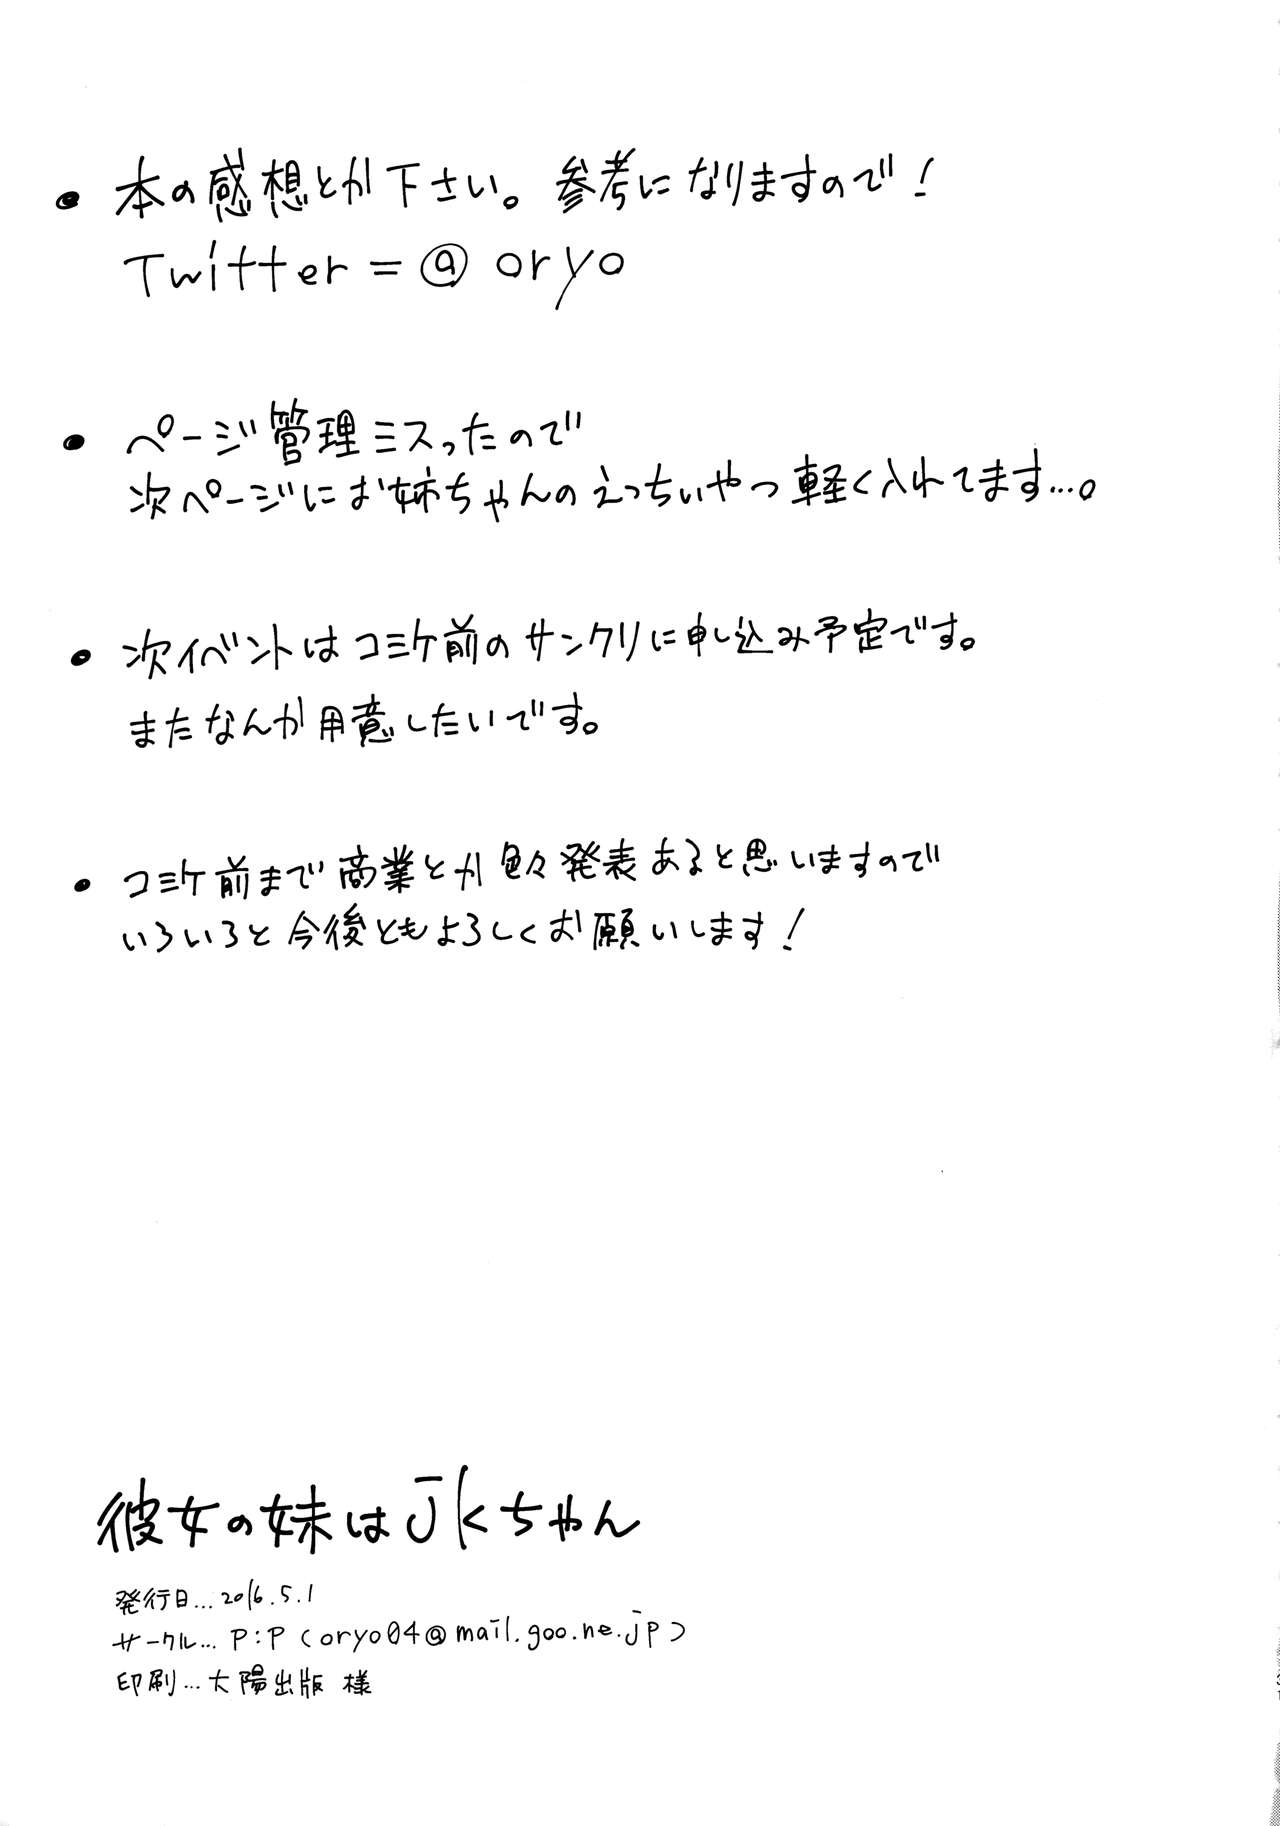 ● 本の感想とか下さい。参考になりますので！
Twitter = @ oryo
● ページ管理ミスったので
次ページにお姉ちゃんのえっちぃやつ軽く入れてます…。
● 次イベントはコミケ前のサンクリに申し込み予定です。
またなんか用意したいです。
● コミケ前まで商業とか色々発表あると思いますので
いろいろと今後ともよろしくお願いします！
彼女の妹はjkちゃん
発行日…2016.5.1
サークル…P:P (oryo04@mail.goo.ne.jp)
印刷…太陽出版 様
31